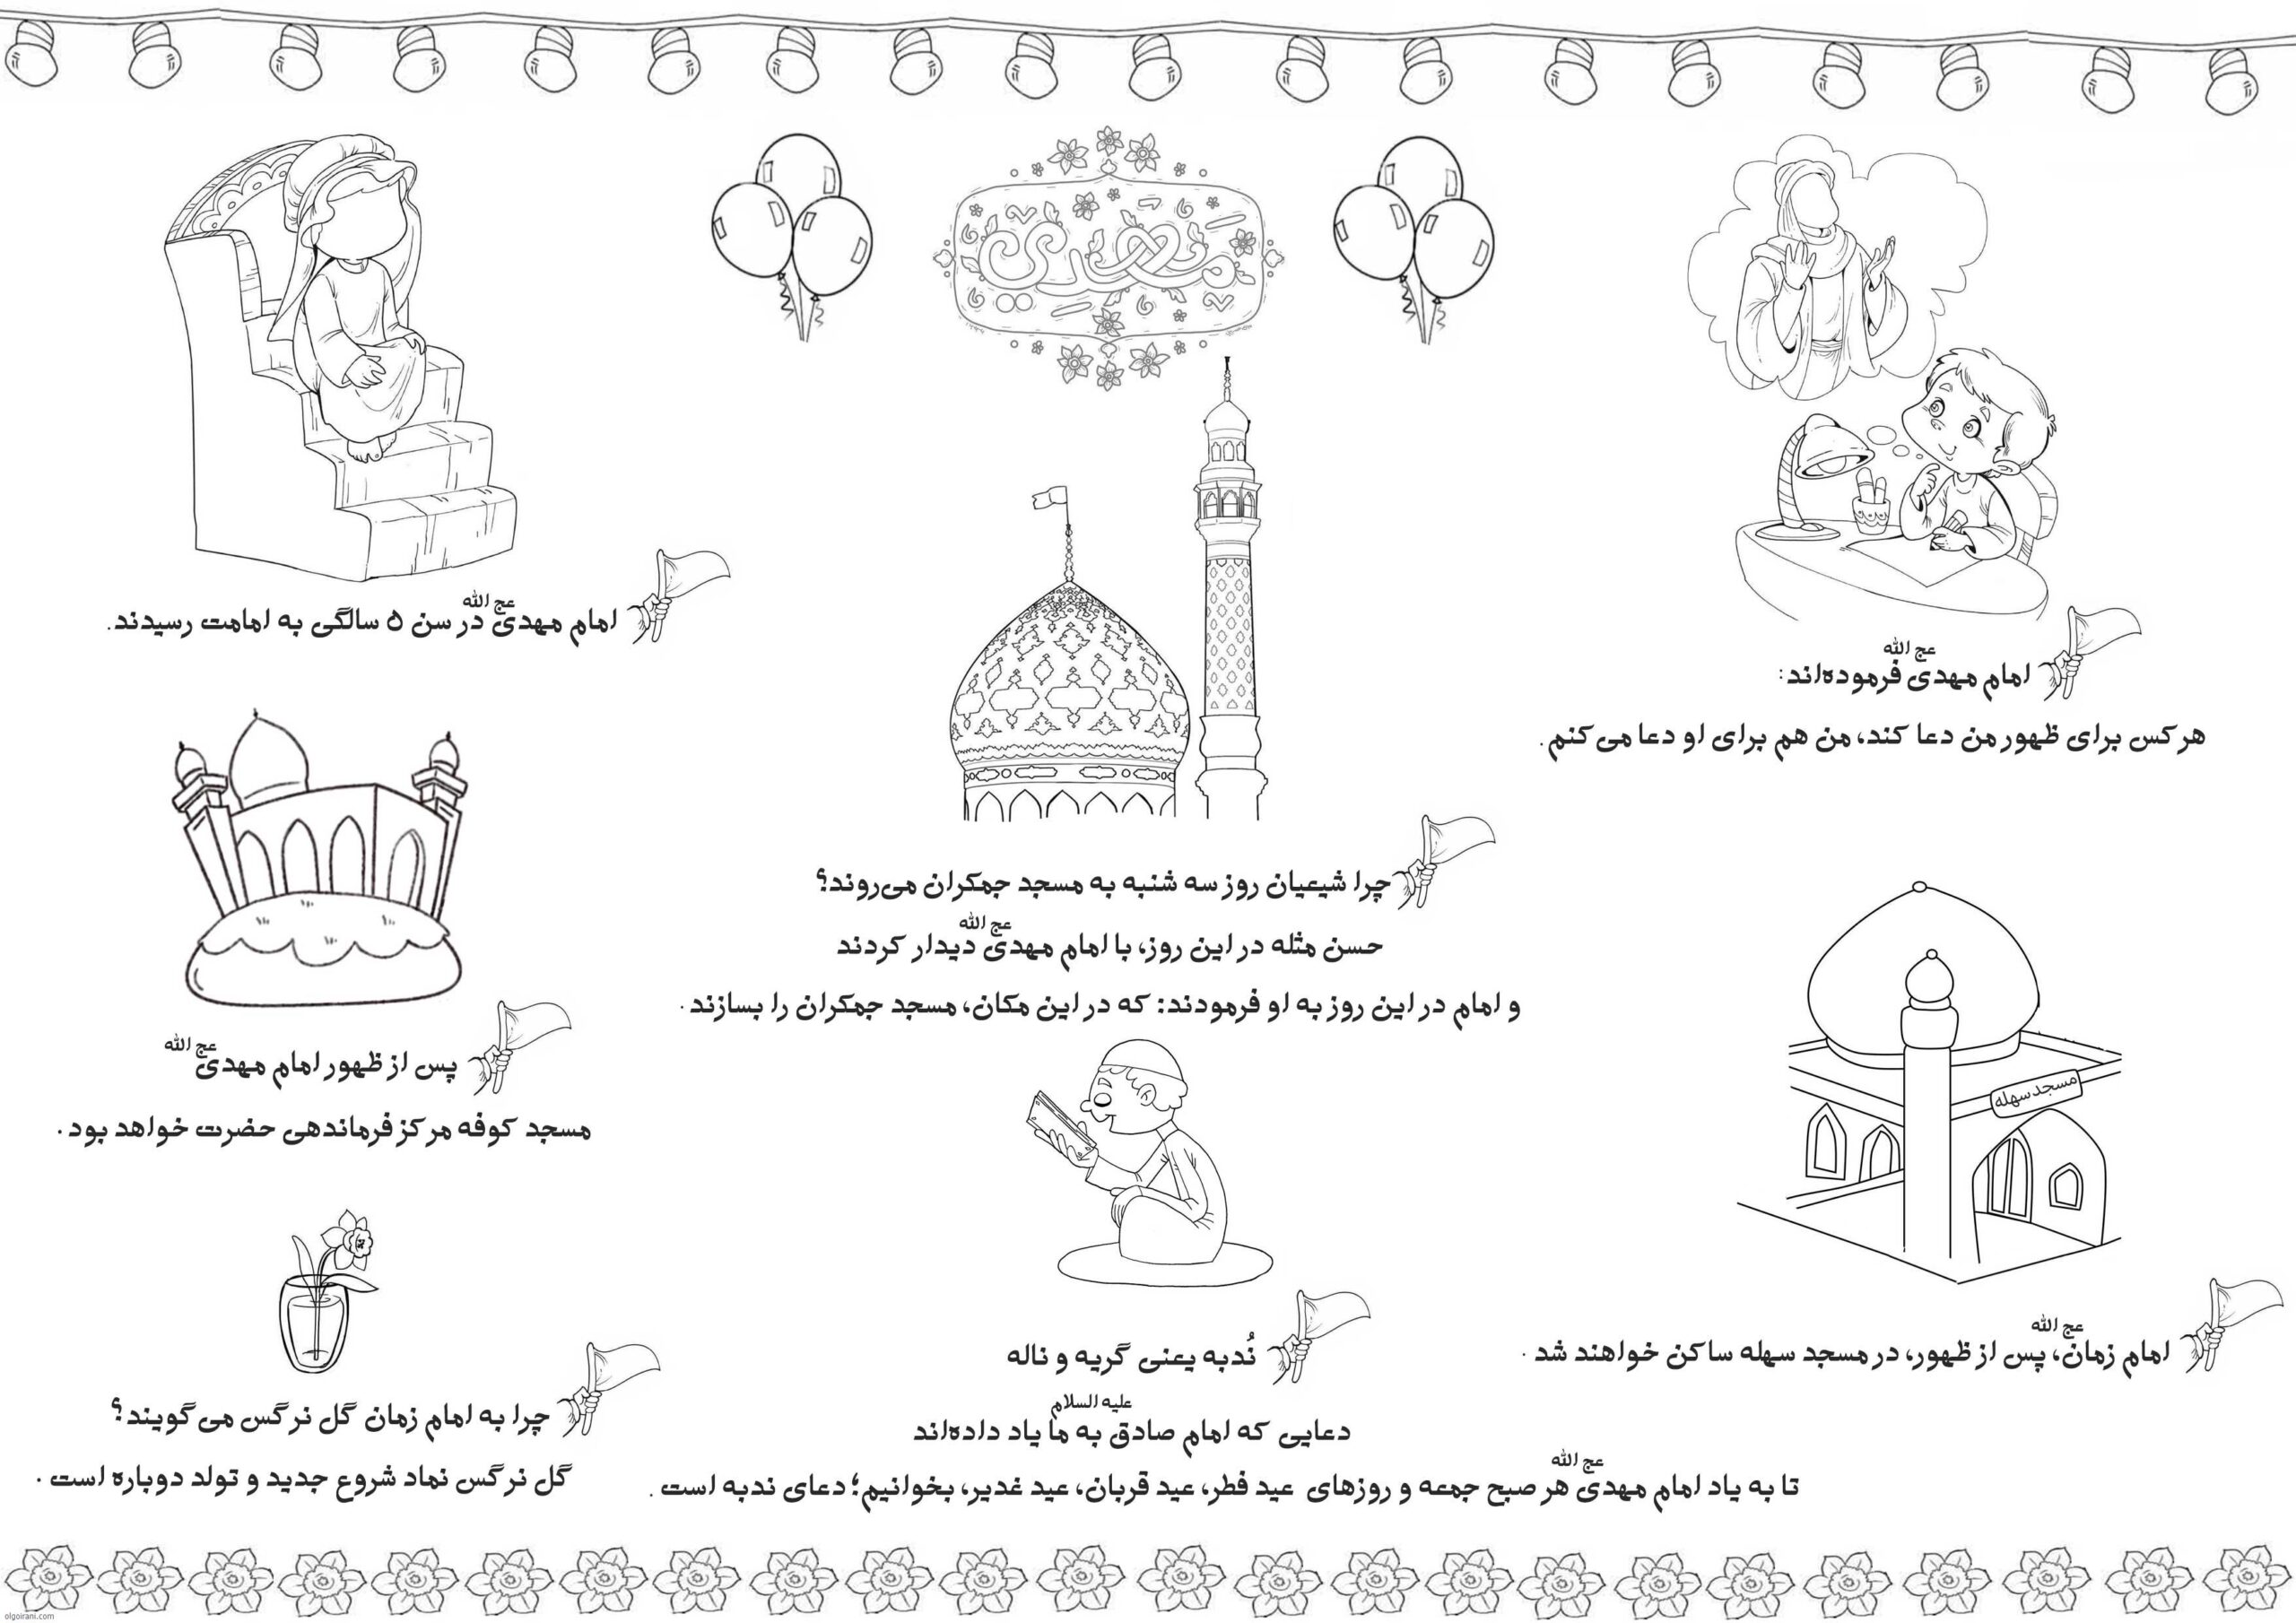 مهدی
امام مهدی عج الله فرموده‌اند:
هرکس برای ظهور من دعا کند، من هم برای او دعا می‌کنم.
مسجد سهله
امام زمان عج الله، پس از ظهور، در مسجد سهله ساکن خواهند شد.
چرا شیعیان روز سه شنبه به مسجد جمکران می‌روند؟
حسن مثله در این روز، با امام مهدی عج الله دیدار کردند
و امام در این روز به او فرمودند: که در این مکان، مسجد جمکران را بسازند.
نُدبه یعنی گریه و ناله
دعایی که امام صادق علیه السلام به ما یاد داده‌اند
تا به یاد امام مهدی عج الله هر صبح جمعه و روزهای عید فطر، عید قربان، عید غدیر، بخوانیم؛ دعای ندبه است.
امام مهدی عج الله در سن ۵ سالگی به امامت رسیدند.
پس از ظهور امام مهدی عج الله
مسجد کوفه مرکز فرماندهی حضرت خواهد بود.
چرا به امام زمان گل نرگس می‌گویند؟
گل نرگس نماد شروع جدید و تولد دوباره است.
olgoirani.com